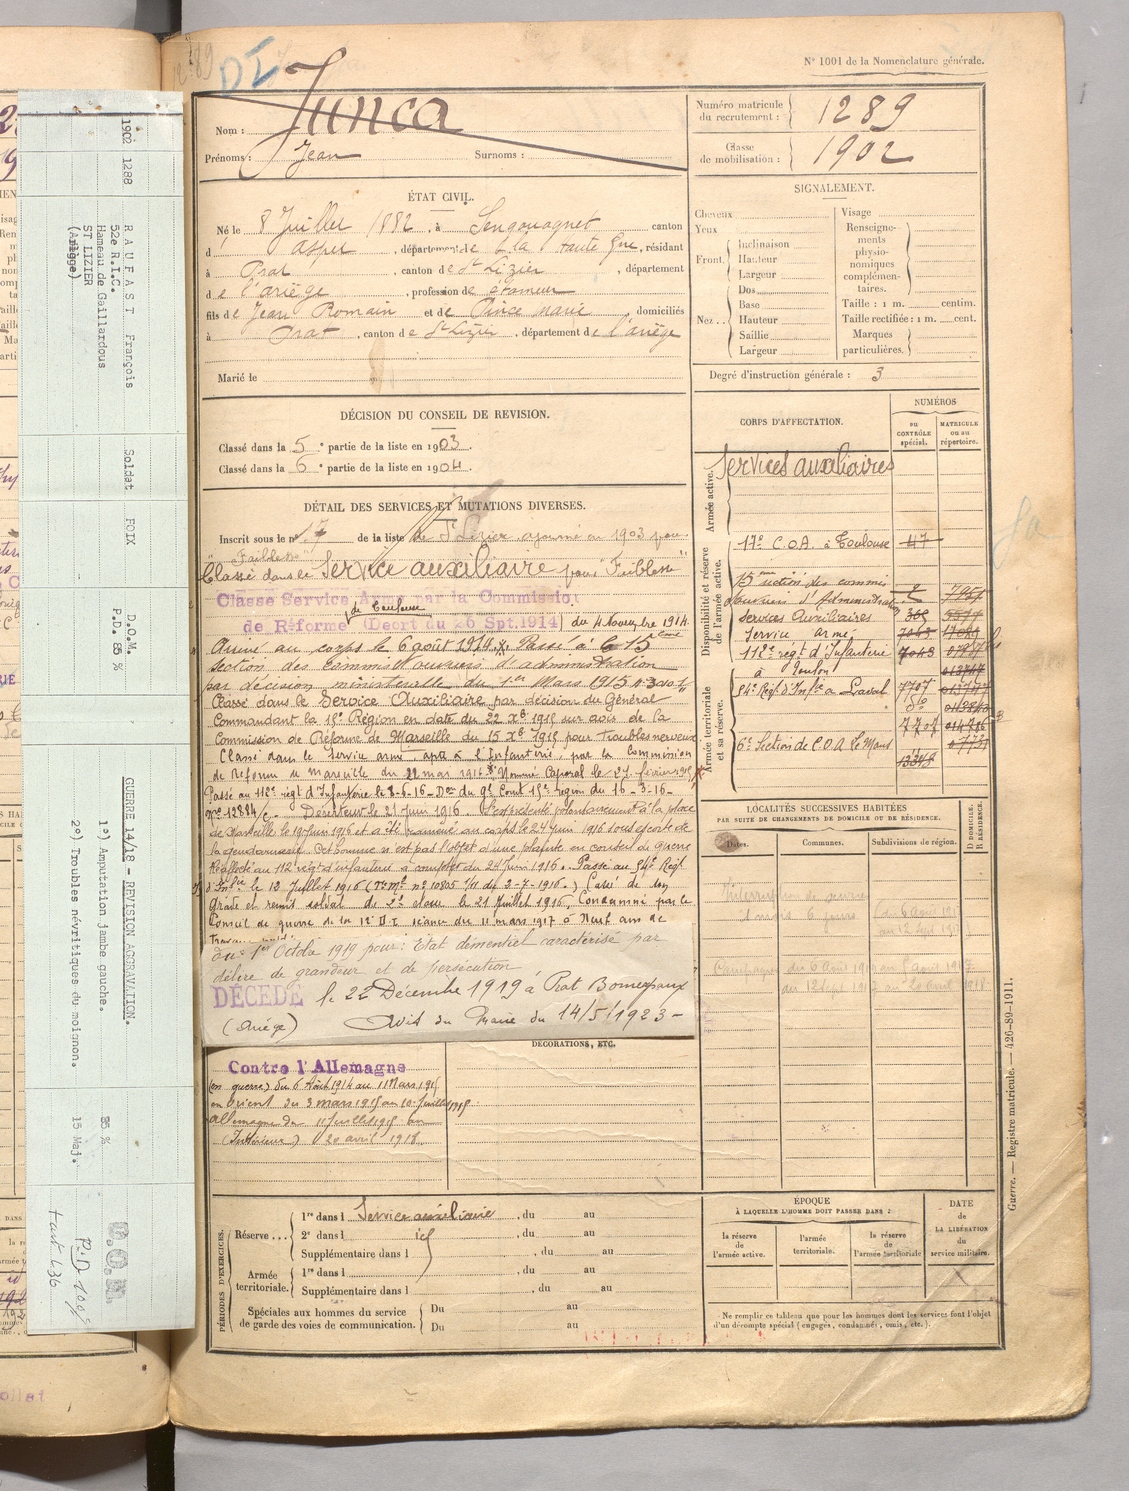 1902 1288
RAUFAST François
Soldat FOIX
D.O.M.
52e R.I.C.
Hameau de Gaillardous
ST LIZIER
(Ariège)
P.D. 85 %
GUERRE 14/18 - REVISION AGGRAVATION.
1°) Amputation jambe gauche.
85 %
2°) Troubles névritiques du moignon.
15 Maj.
P.D. 100%
N° 1001 de la Nomenclature générale.
1289
DI
Nom : Junca
Prénoms : Jean Surnoms :
Numéro matricule du recrutement : 1289
Classe de mobilisation : 1902
ÉTAT CIVIL.
Né le 8 Juillet 1882, à Sengouagnet canton
d' Aspet, département de la Haute Gne, résidant
à Prat, canton de St Lizier, département
de l'ariège, profession de étameur
fils de Jean Romain et de Pince Marie domiciliés
à Prat, canton de St Lizier, département de l'ariège
Marié le
SIGNALEMENT.
Cheveux
Yeux
Front. Inclinaison
Hauteur
Largeur
Nez Dos
Base
Hauteur
Saillie
Largeur
Visage
Renseignements physionomiques complémentaires.
Taille : 1 m. centim.
Taille rectifiée : 1 m. cent.
Marques particulières.
Degré d'instruction générale : 3
DÉCISION DU CONSEIL DE REVISION.
Classé dans la 5e partie de la liste en 1903.
Classé dans la 6e partie de la liste en 1904.
DÉTAIL DES SERVICES ET MUTATIONS DIVERSES.
Inscrit sous le n° 17 de la liste de St Lizier ajourné en 1903 pour
"Faiblesse"
Classé dans le Service auxiliaire pour "Faiblesse"
Classé Service Armé par la Commission
de Toulouse
de Réforme (Décret du 26 Spt.1914) du 4 novembre 1914.
Arrivé au corps le 6 août 1914. Passé à la 15ème
Section des Commis Ouvriers d'administration
par décision ministérielle du 1er Mars 1915
Classé dans le Service Auxiliaire par décision du Général
Commandant la 15e Région en date du 22 Xbre 1915 sur avis de la
Commission de Réforme de Marseille du 15 Xbre 1915 pour troubles nerveux
Classé dans le service armé apte à l'Infanterie par la Commission
de Réforme de Marseille du 22 mars 1916. Nommé Caporal le 27 février 1915
Passé au 112e régt d'Infanterie le 8-6-16 - Don du Gl Comt 15e région du 16-3-16
N° 12884/C. Déserteur le 21 Juin 1916. S'est présenté volontairement à la place
de Marseille le 19 Juin 1916 et a été ramené au corps le 24 Juin 1916 sous escorte de
la gendarmerie. Cet homme n'est pas l'objet d'une plainte en conseil de guerre
Réaffecté au 112 régt d'infanterie à compter du 24 Juin 1916. Passé au 54e Régt
d'Infie le 12 Juillet 1916 (n° 10805 1/11 du 2-7-1916.) Cassé de son
Grade et remis soldat de 2e classe le 21 Juillet 1916, Condamné par le
Conseil de guerre de la 12e D.I. séance du 11 mars 1917 à Neuf ans de
1er Octobre 1919 pour : Etat démentiel caractérisé par
délire de grandeur et de persécution
DÉCÉDÉ le 22 Décembre 1919 à Prat Bonrepaux
(Ariège) Avis du Maire du 14/5/1923 -
DÉCORATIONS, ETC.
Contre l'Allemagne
(en guerre) du 6 Août 1914 au 11 Mars 1915
en Orient du 3 mars 1915 au 10 Juillet 1915
allemagne du 11 Juillet 1915 au
(Intérieur) 20 avril 1918.
CORPS D'AFFECTATION.
NUMÉROS
au CONTRÔLE spécial.
MATRICULE ou au répertoire.
Armée active.
Services auxiliaires
Disponibilité et réserve de l'armée active.
17e C.O.A. à Toulouse 47
15ème section des commis
ouvriers d'Administration
Services Auxiliaires
Service armé
112e régt d'Infanterie 7048
à Toulon
Armée territoriale et sa réserve.
54e Régt d'Infie à Laval 7707
do
7707
6e Section de C.O.A. Le Mans
LOCALITÉS SUCCESSIVES HABITÉES
PAR SUITE DE CHANGEMENTS DE DOMICILE OU DE RÉSIDENCE.
Dates.
Communes.
Subdivisions de région.
D DOMICILE. R RÉSIDENCE.
Guerre. — Registre matricule. — 426-89-1911.
PÉRIODES D'EXERCICES.
Réserve... 1re dans l Service auxiliaire, du au
2e dans l id, du au
Supplémentaire dans l , du au
Armée territoriale. 1re dans l , du au
Supplémentaire dans l , du au
Spéciales aux hommes du service de garde des voies de communication. Du au
Du au
ÉPOQUE
À LAQUELLE L'HOMME DOIT PASSER DANS :
la réserve de l'armée active.
l'armée territoriale.
la réserve de l'armée territoriale
DATE de LA LIBÉRATION du service militaire.
Ne remplir ce tableau que pour les hommes dont les services font l'objet
d'un décompte spécial (engagés, condamnés, omis, etc.).